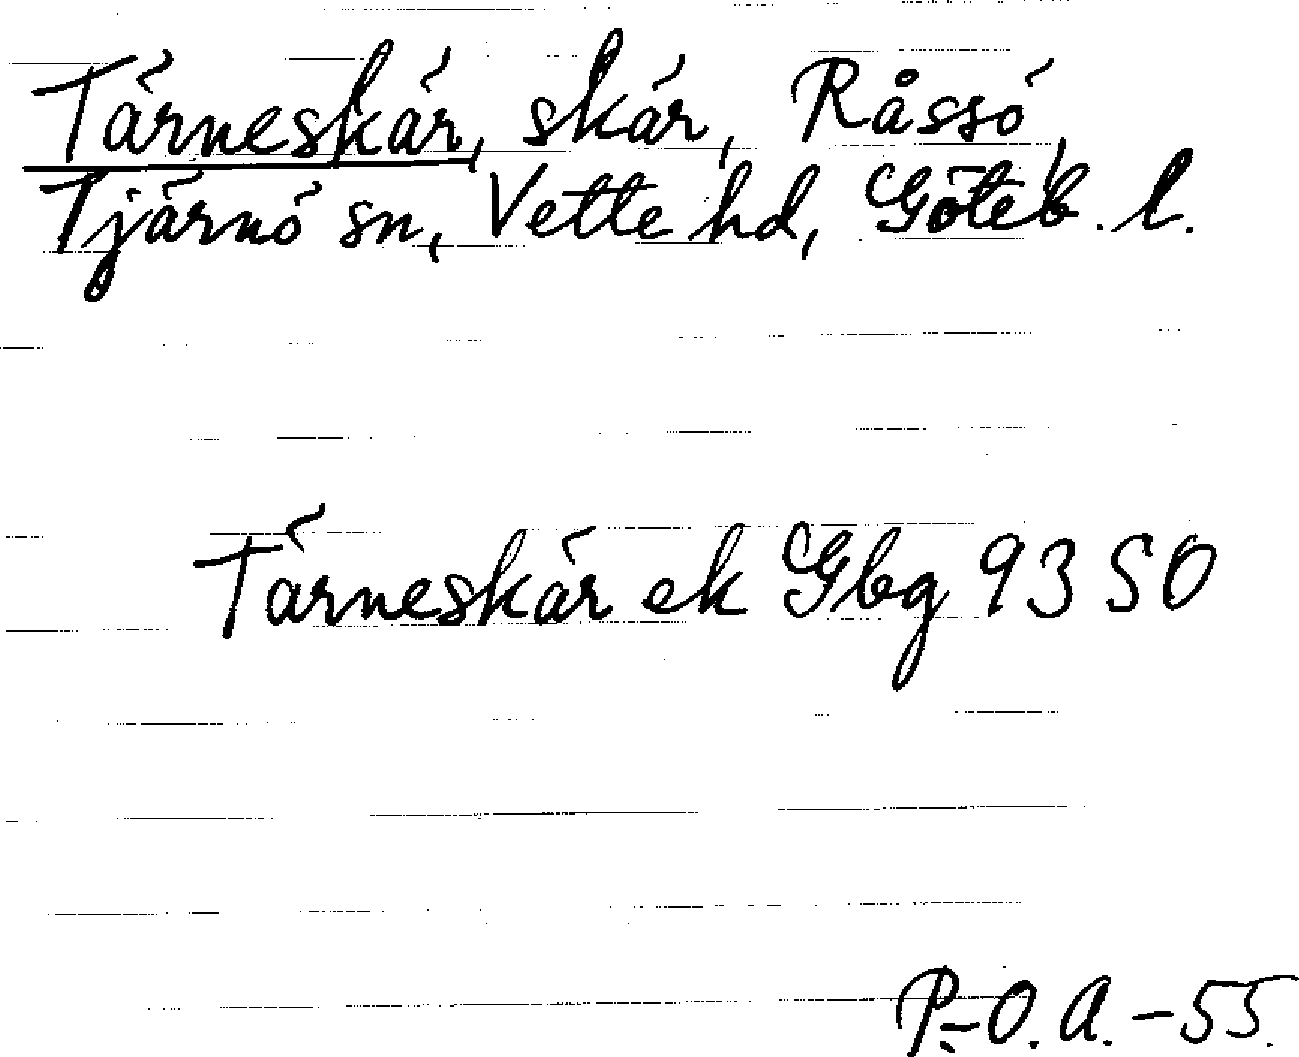 Tärneskär, skär, Råssö,
Tjärnö sn, Vette hd, Göteb. l.
Tärneskär ek Gbg 93 SO
P.-O. A. - 55.